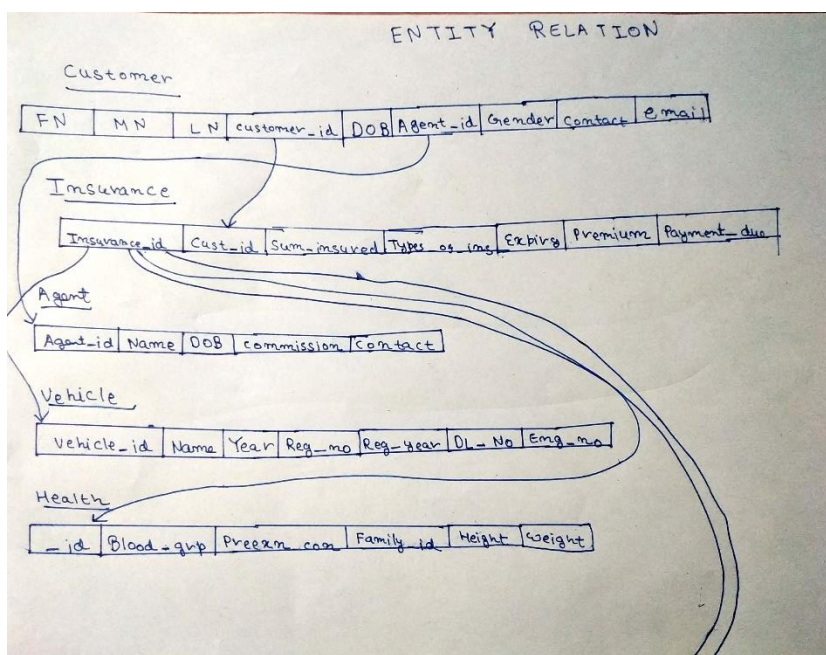 ENTITY RELATION
Customer
FN MN LN customer_id DOB Agent_id Gender Contact email
Insurance
Insurance_id Cust_id Sum_insured Types_of_ins Expiry Premium Payment_due
Agent
Agent_id Name DOB commission Contact
Vehicle
Vehicle_id Name Year Reg_no Reg_year DL_No Eng_no
Health
_id Blood_grp Preexn_con Family_id Height weight